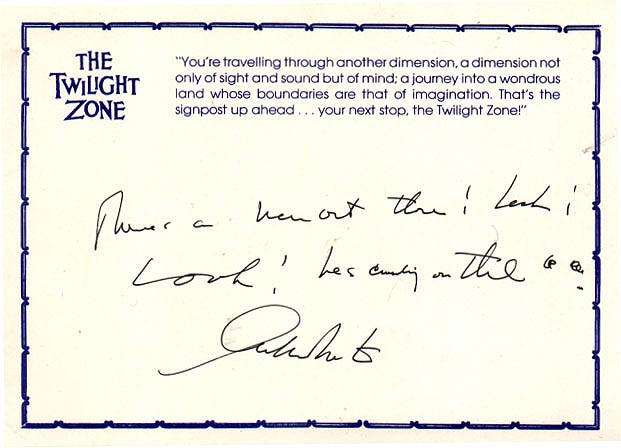 THE
TWILIGHT
ZONE
"You're travelling through another dimension, a dimension not
only of sight and sound but of mind; a journey into a wondrous
land whose boundaries are that of imagination. That's the
signpost up ahead . . . your next stop, the Twilight Zone!"
There's a man out there! Look!
Look! hes on the